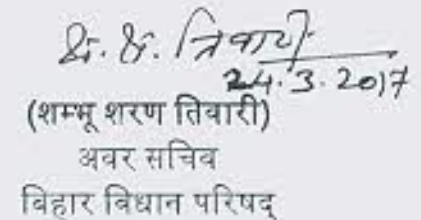 श. श. तिवारी
24.3.2017
(शम्भू शरण तिवारी)
अवर सचिव
बिहार विधान परिषद्